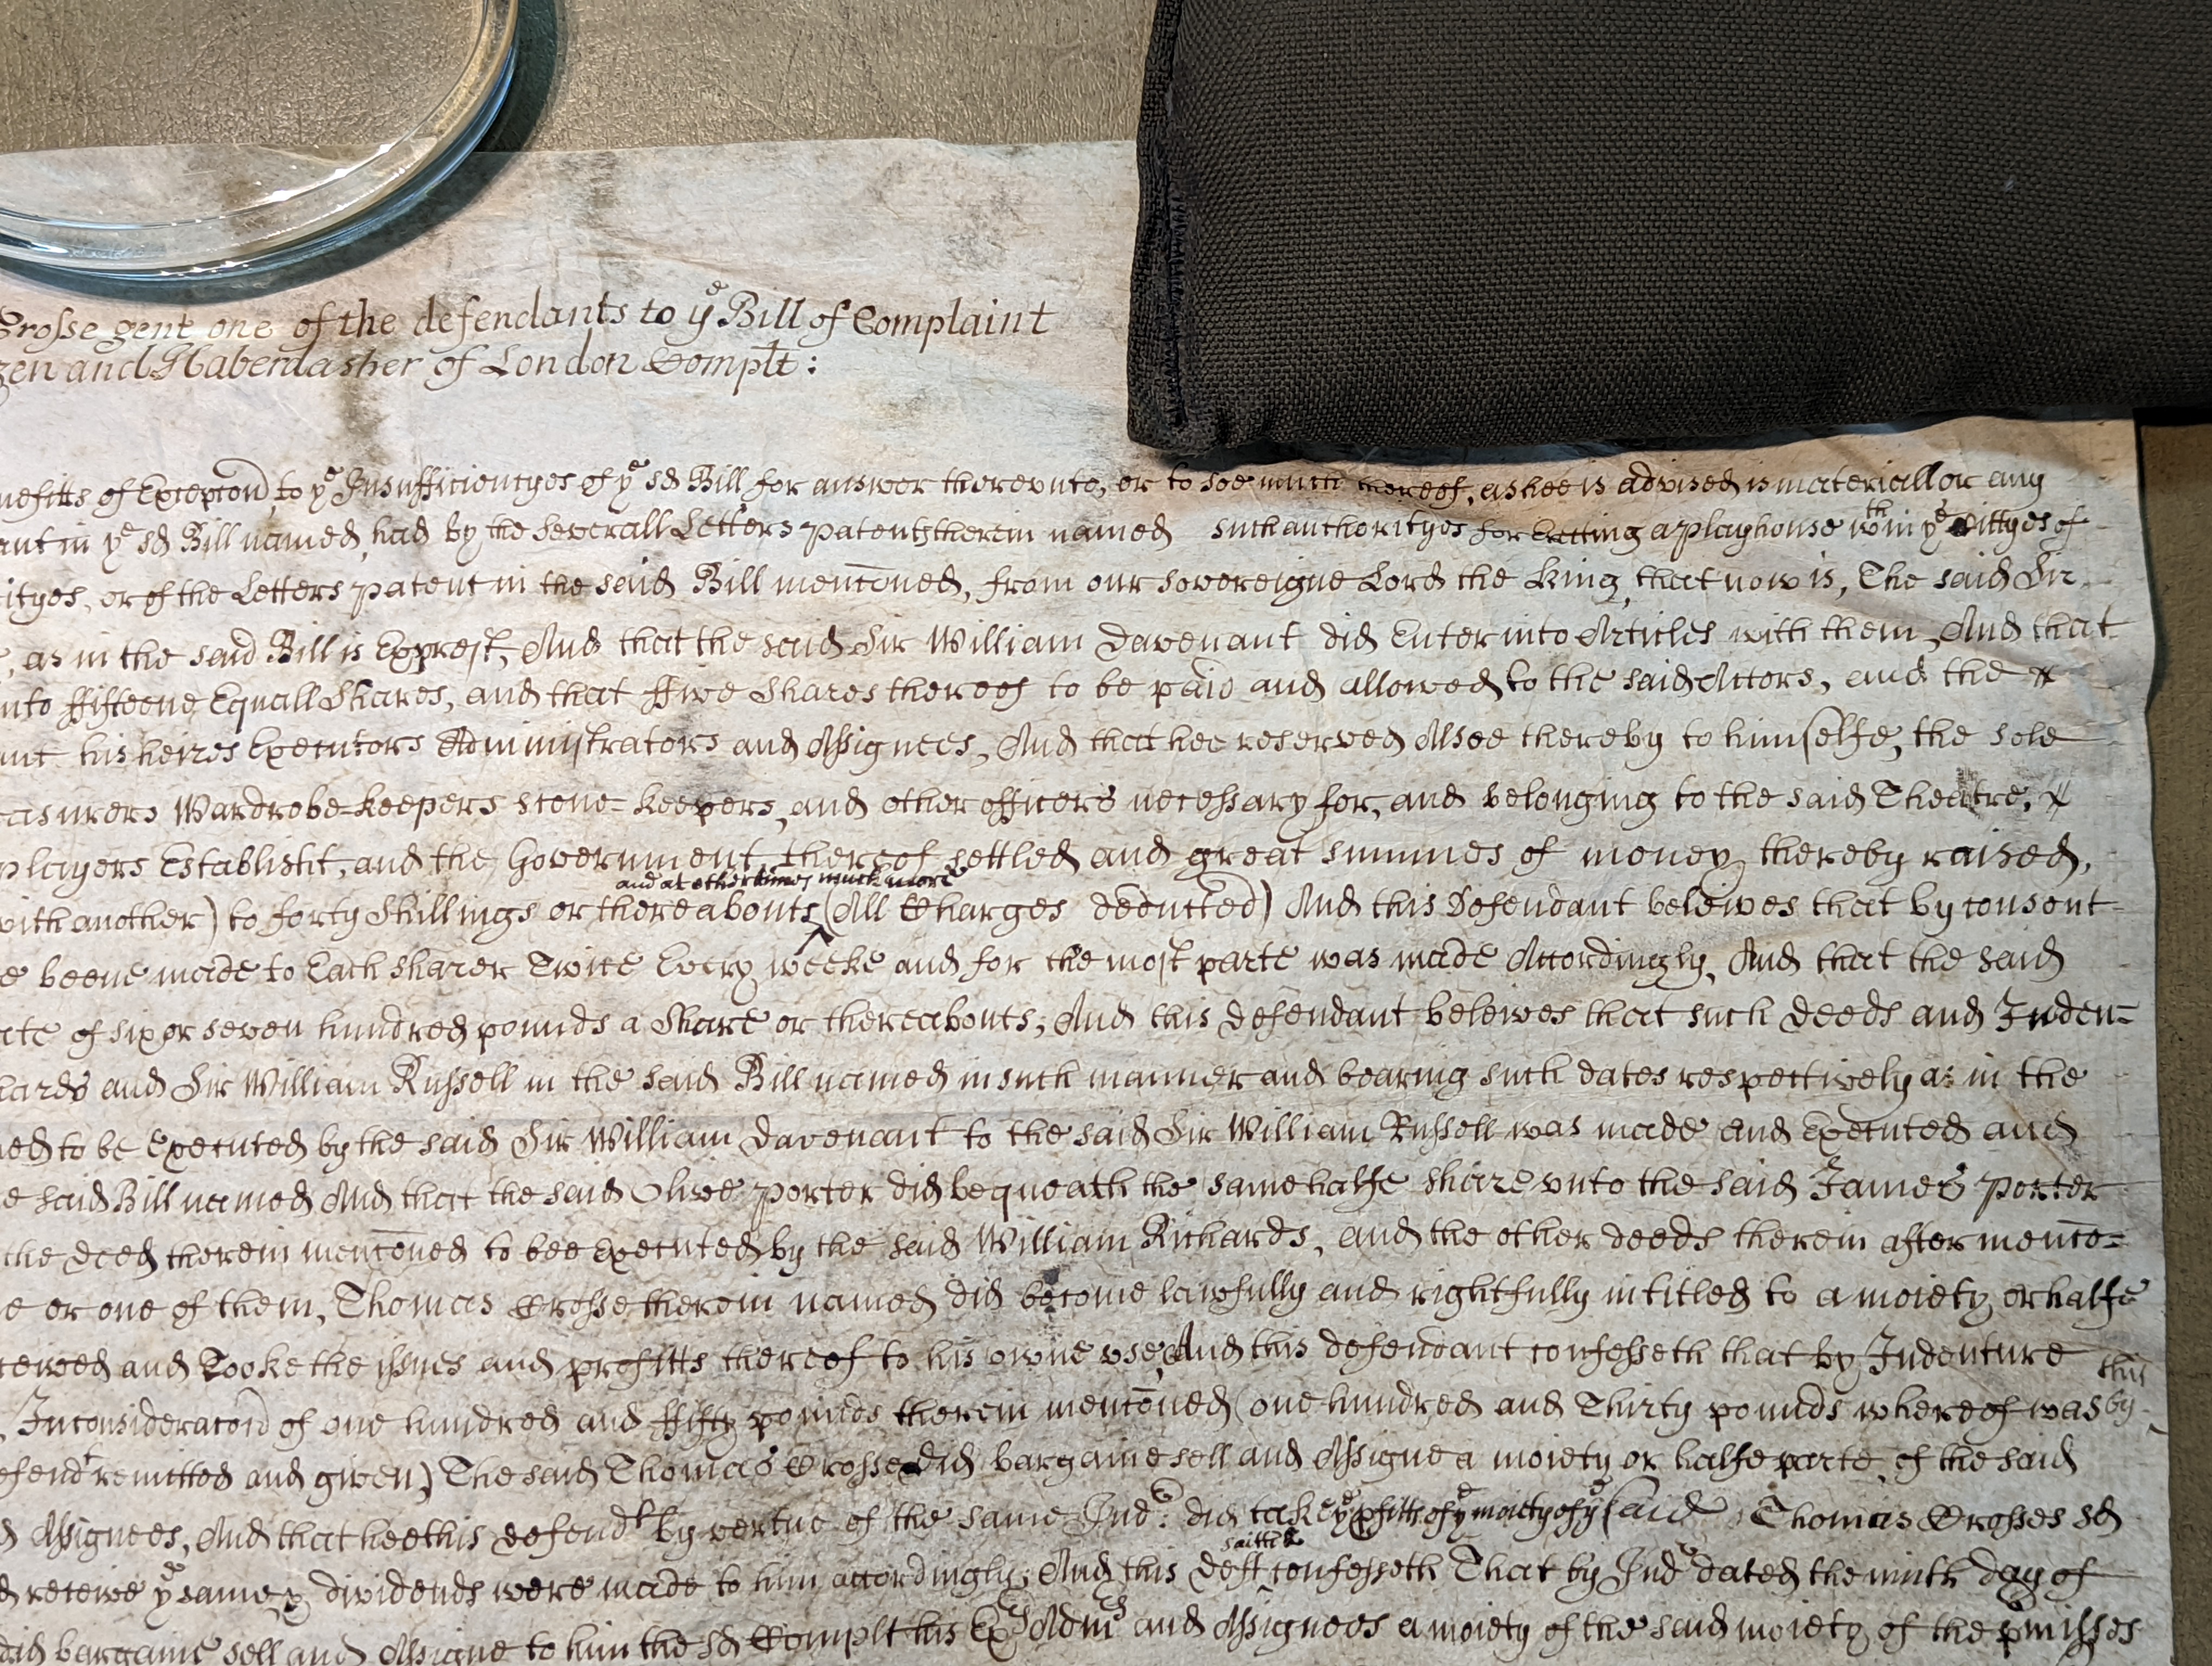 Crosse gent one of the defendants to yͤ Bill of Complaint
zen and Haberdasher of London Complt:
nefitts of Excepcon to yͤ Insufficientyes of yͤ sd Bill for answer therevnto, or to soe much thereof, as hee is advised is materiall or any
ant in yͤ sd Bill named, had by the severall Letters patents therein named such authorityes for Erecting a playhouse wᵗʰin yͤ Cittyes of
ityes, or of the Letters patent in the said Bill menc̄oned, from our sovereigne Lord the King, that now is, The said Sir
, as in the said Bill is Exprest, And that the said Sir William Davenant did Enter into Articles with them, And that
nto ffifteene Equall Shares, and that ffive Shares thereof to be paid and allowed to the said Actors, and the
ant his heires Executors Administrators and Assignees, And that hee reserved Alsoe thereby to himselfe, the sole
asurers Wardrobe=keepers scene=keepers, and other officers necessary for, and belonging to the said Theatre,
players Establisht, and the Government thereof settled and great summes of money thereby raised,
and at other times much more
with another) to forty Shillings or thereabouts ^ (All Charges deducted) And this Defendant beleives that by consent
e beene made to Each sharer Twice Every weeke and for the most parte was made Accordingly, And that the said
ate of six or seven hundred pounds a Share or thereabouts; And this defendant beleives that such deeds and Inden=
hards and Sir William Russell in the said Bill named in such manner and bearing such dates respectively as in the
ned to be Executed by the said Sir William Davenant to the said Sir William Russell was made and Executed and
e said Bill named And that the said Olive Porter did bequeath the same halfe share vnto the said James Porter
the deed therein menc̄oned to bee Executed by the said William Richards, and the other deeds therein after menc̄o=
e or one of them, Thomas Crosse therein named did become lawfully and rightfully intitled to a moiety or halfe
ceived and Tooke the issues and profitts thereof to his owne vse, And this defendant confesseth that by Indenture this
, In consideracon of one hundred and ffifty pounds therein menc̄oned (one hundred and Thirty pounds whereof was by
efendᵗ remitted and given) The said Thomas Crosse did bargaine sell and Assigne a moiety or halfe parte of the said
d Assignees, And that hee this defendᵗ by vertue of the same Indͤ: did take yͤ pfitts of yͤ moiety of yͤ said Thomas Crosses sd
saith &
d receive yͤ same & dividends were made to him accordingly; And this Deft ^ confesseth That by Indͤ dated the ninth day of
did bargaine sell and Assigne to him the sd Complt his Exʳˢ Admʳˢ and Assignees a moiety of the said moiety of the pmisses